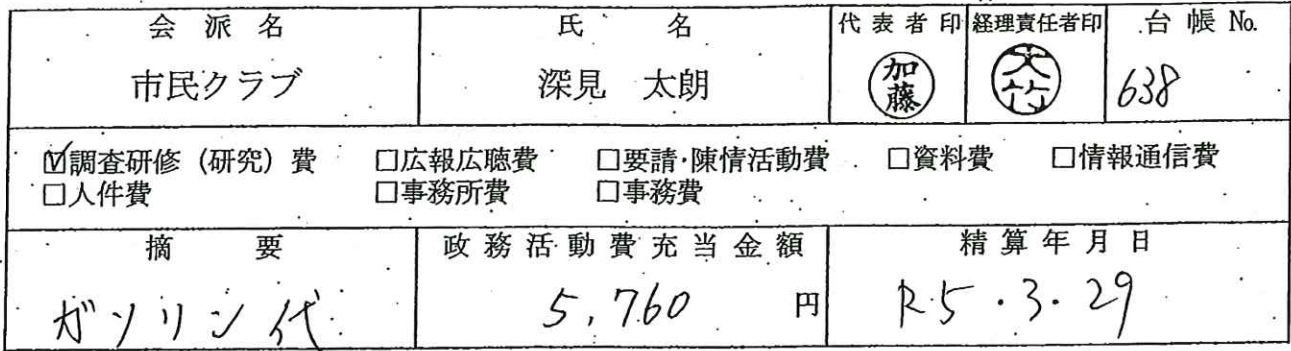 会派名 氏名 代表者印 経理責任者印 台帳No.
市民クラブ 深見 太朗 加藤 大竹 638
☑調査研修（研究）費 □広報広聴費 □要請・陳情活動費 □資料費 □情報通信費
□人件費 □事務所費 □事務費
摘要 政務活動費充当金額 精算年月日
ガソリン代 5,760 円 R5・3・29